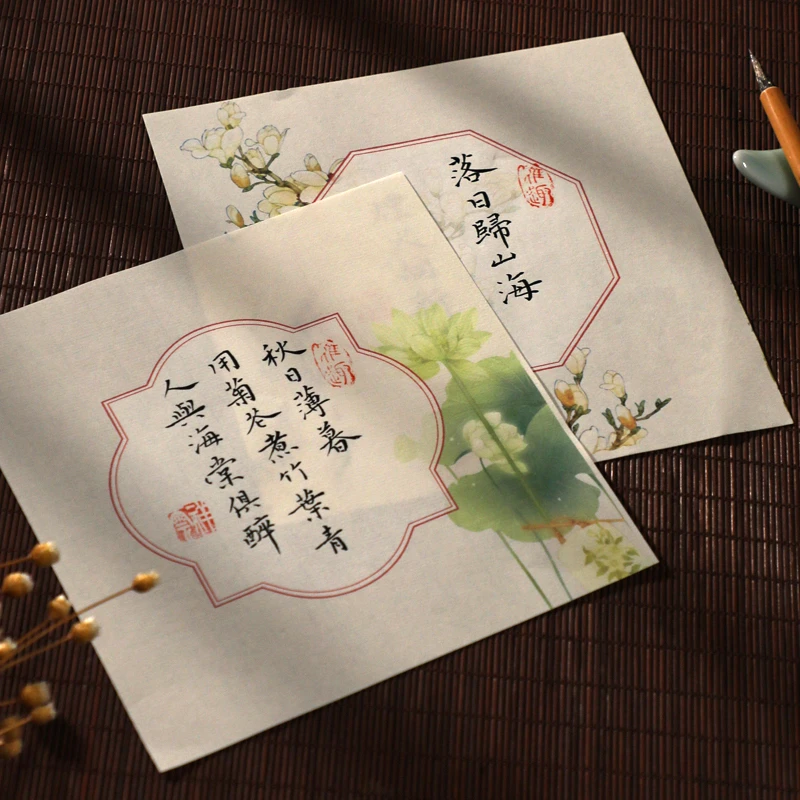 落日歸山海
雅趣
秋日薄暮
用菊花煮竹葉青
人與海棠俱醉
雅趣